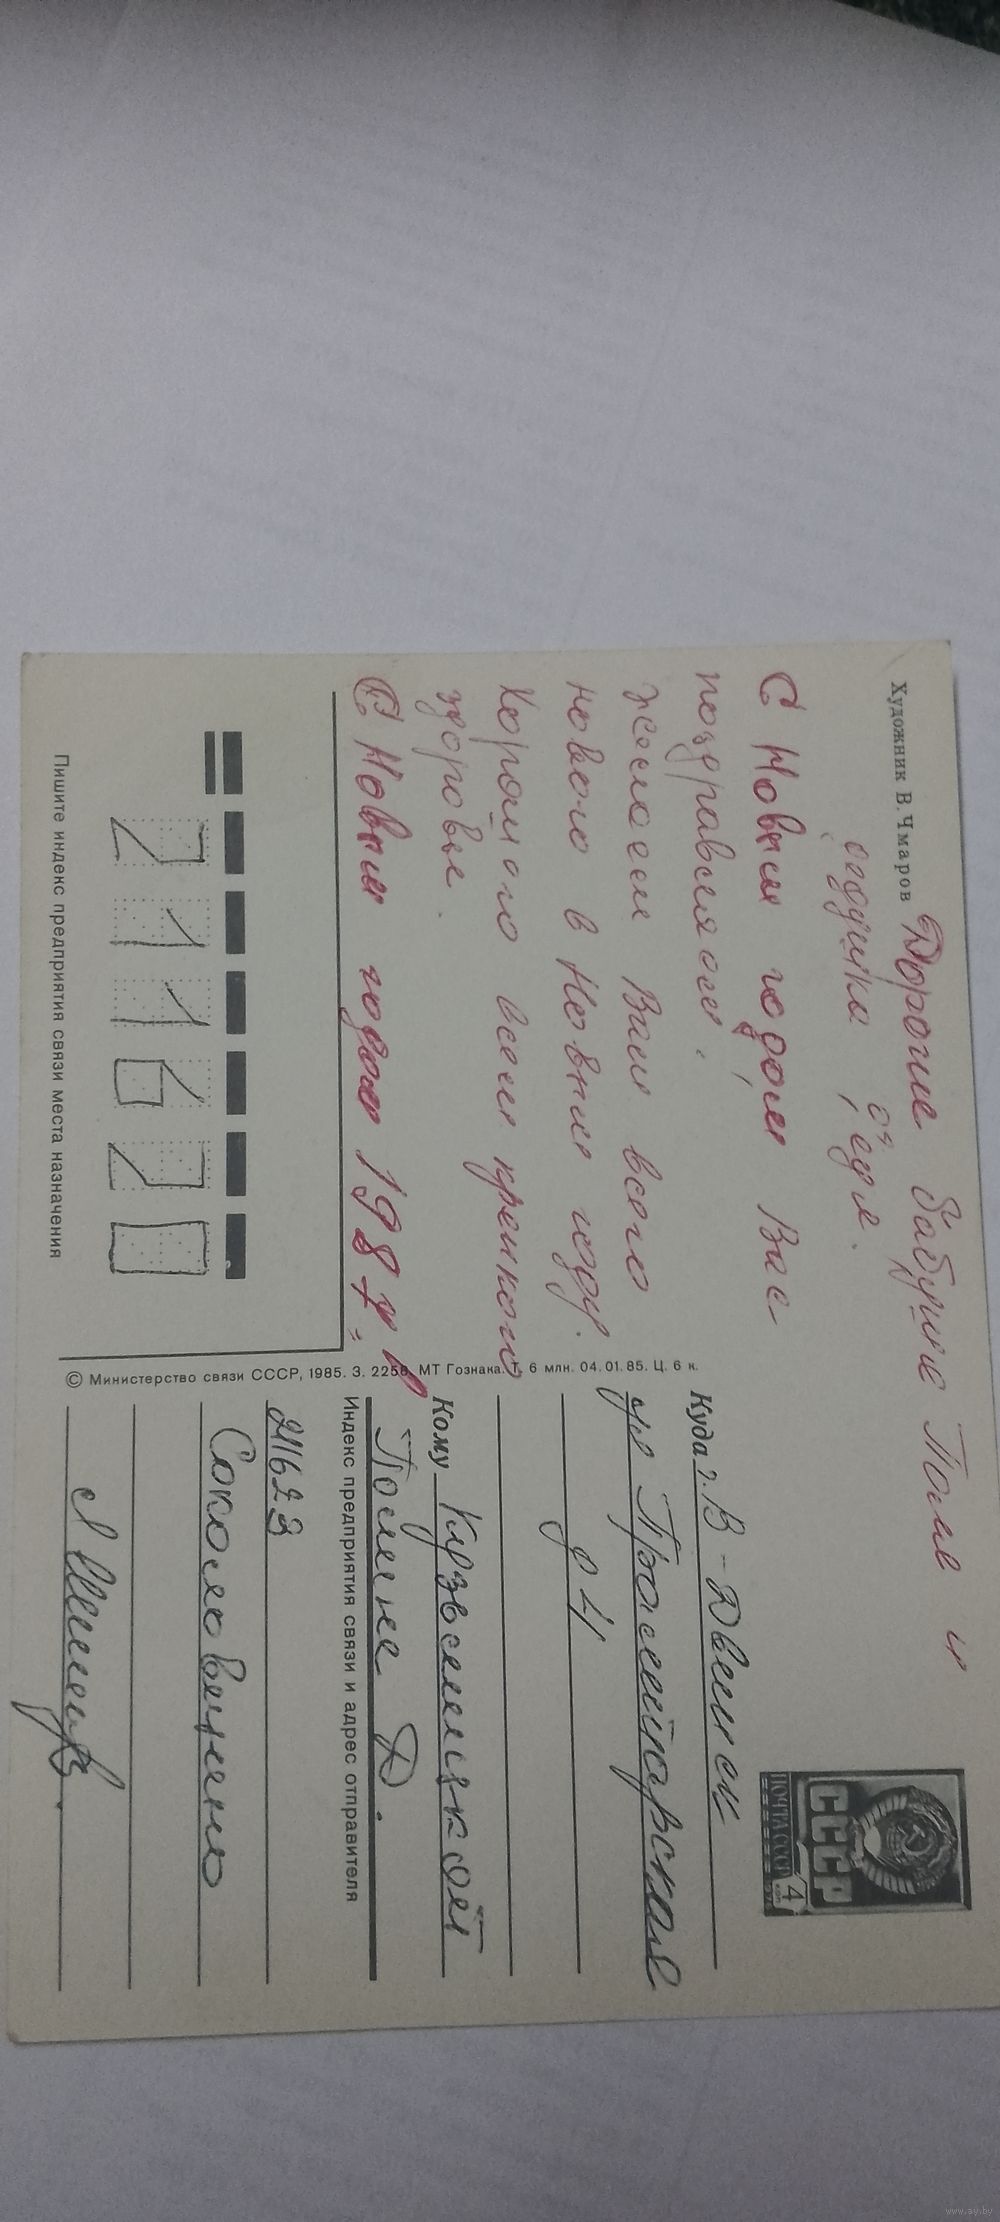 Художник В. Чмаров
Дорогие бабушка Поля и
дядя Федя.
С Новым годом Вас
поздравляем.
желаем Вам всего
нового в Новым году.
Хорошого всем крепкого
здоровье.
С Новым годом 1987!
211620
Пишите индекс предприятия связи места назначения
© Министерство связи СССР, 1985. З. 2258. МТ Гознака. Т. 6 млн. 04.01.85. Ц. 6 к.
СССР
ПОЧТА СССР
4
коп
Куда г. В-Двинск
ул Пролетарская
д 4
Кому
Полине Д.
Индекс предприятия связи и адрес отправителя
211623
www.ay.by